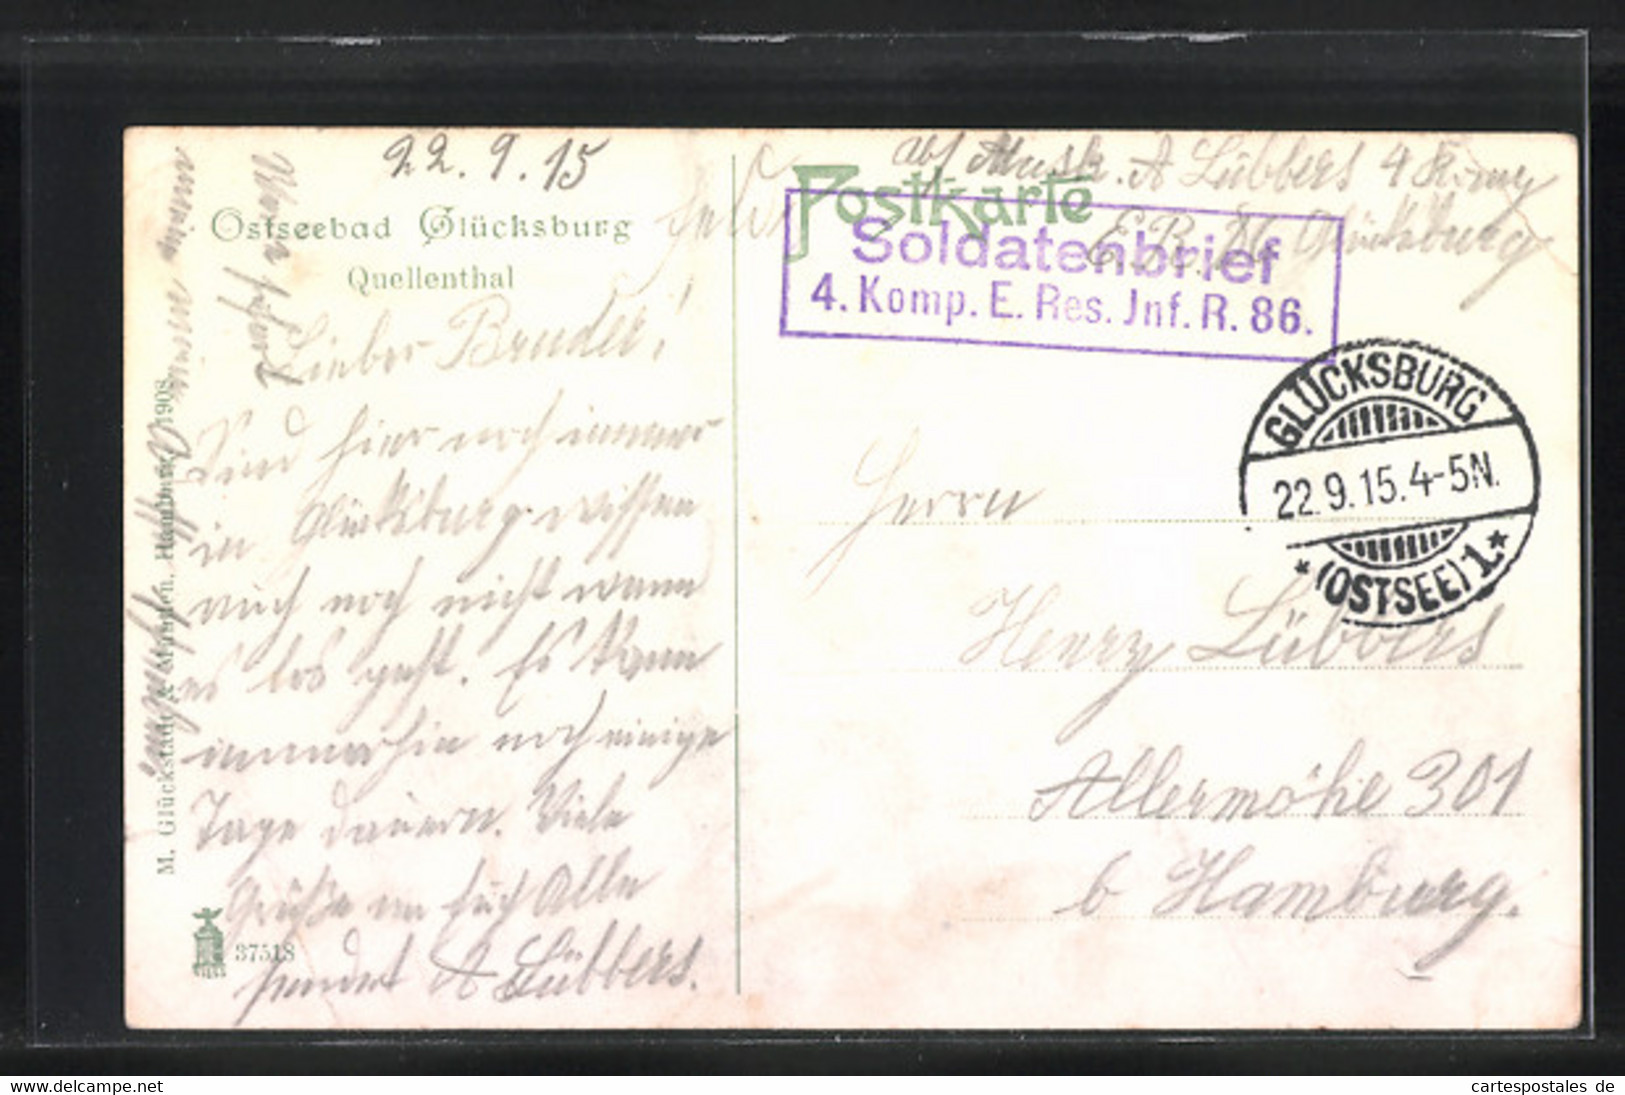 22.9.15
Ostseebad Glücksburg
Quellenthal
Lieber Bruder!
Sind hier noch immer
in Glücksburg wissen
auch noch nicht wann
es los geht. Es kann
immerhin noch einige
Tage dauern. Viele
Grüße an Euch Alle
sendet A Lübbers.
M. Glückstadt & Münden, Hamburg 1908
37518
Postkarte
abs Musk. A Lübbers 4 Komp
E.B. 86 Glücksburg
Feldp
Soldatenbrief
4. Komp. E. Res. Jnf. R. 86.
GLÜCKSBURG
22.9.15.4-5N.
*(OSTSEE)1.*
Herrn
Henry Lübbers
Allermöhe 301
b Hamburg.
www.delcampe.net
cartespostales de